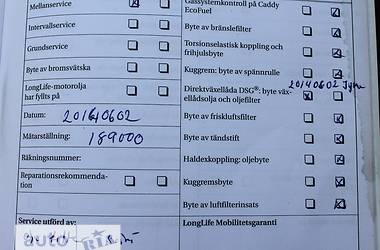 Mellanservice
Intervallservice
Grundservice
Byte av bromsvätska
LongLife-motorolja
har fyllts på
Datum: 20140602
Mätarställning: 189000
Räkningsnummer:
Reparationsrekommenda-
tion
Service utförd av:
Gassystemkontroll på Caddy
EcoFuel
Byte av bränslefilter
Torsionselastisk koppling och
frihjulsbyte
Kuggrem: byte av spännrulle
20140602
Direktväxellåda DSG®: byte väx-
ellådsolja och oljefilter
Byte av friskluftsfilter
Byte av tändstift
Haldexkoppling: oljebyte
Kuggremsbyte
Byte av luftfilterinsats
LongLife Mobilitetsgaranti
auto RIA